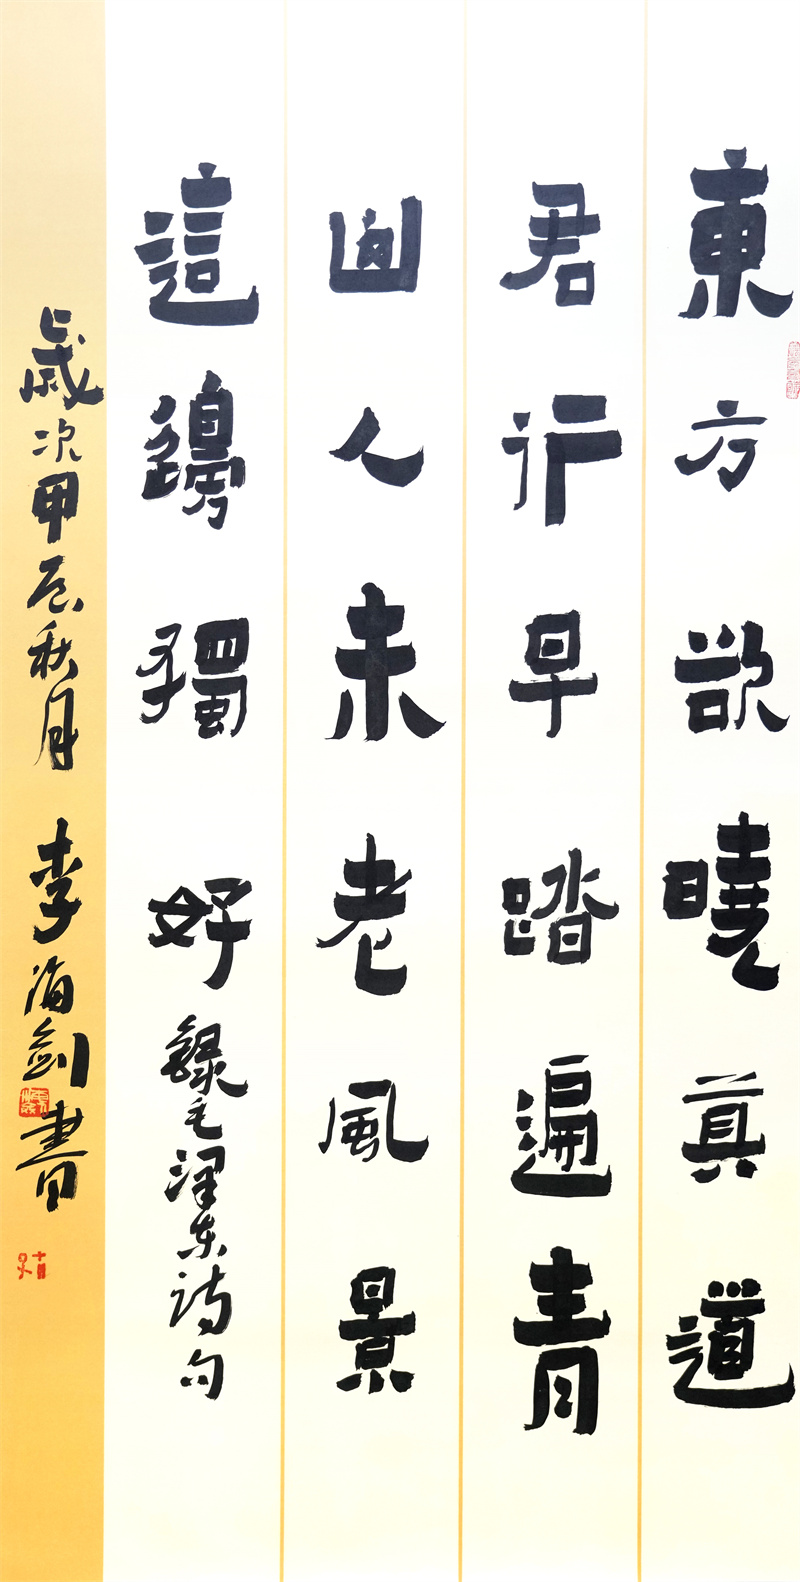 東方欲曉莫道
君行早踏遍青
山人未老風景
這邊獨好 錄毛澤东诗句
歲次甲辰秋月 李海劍書